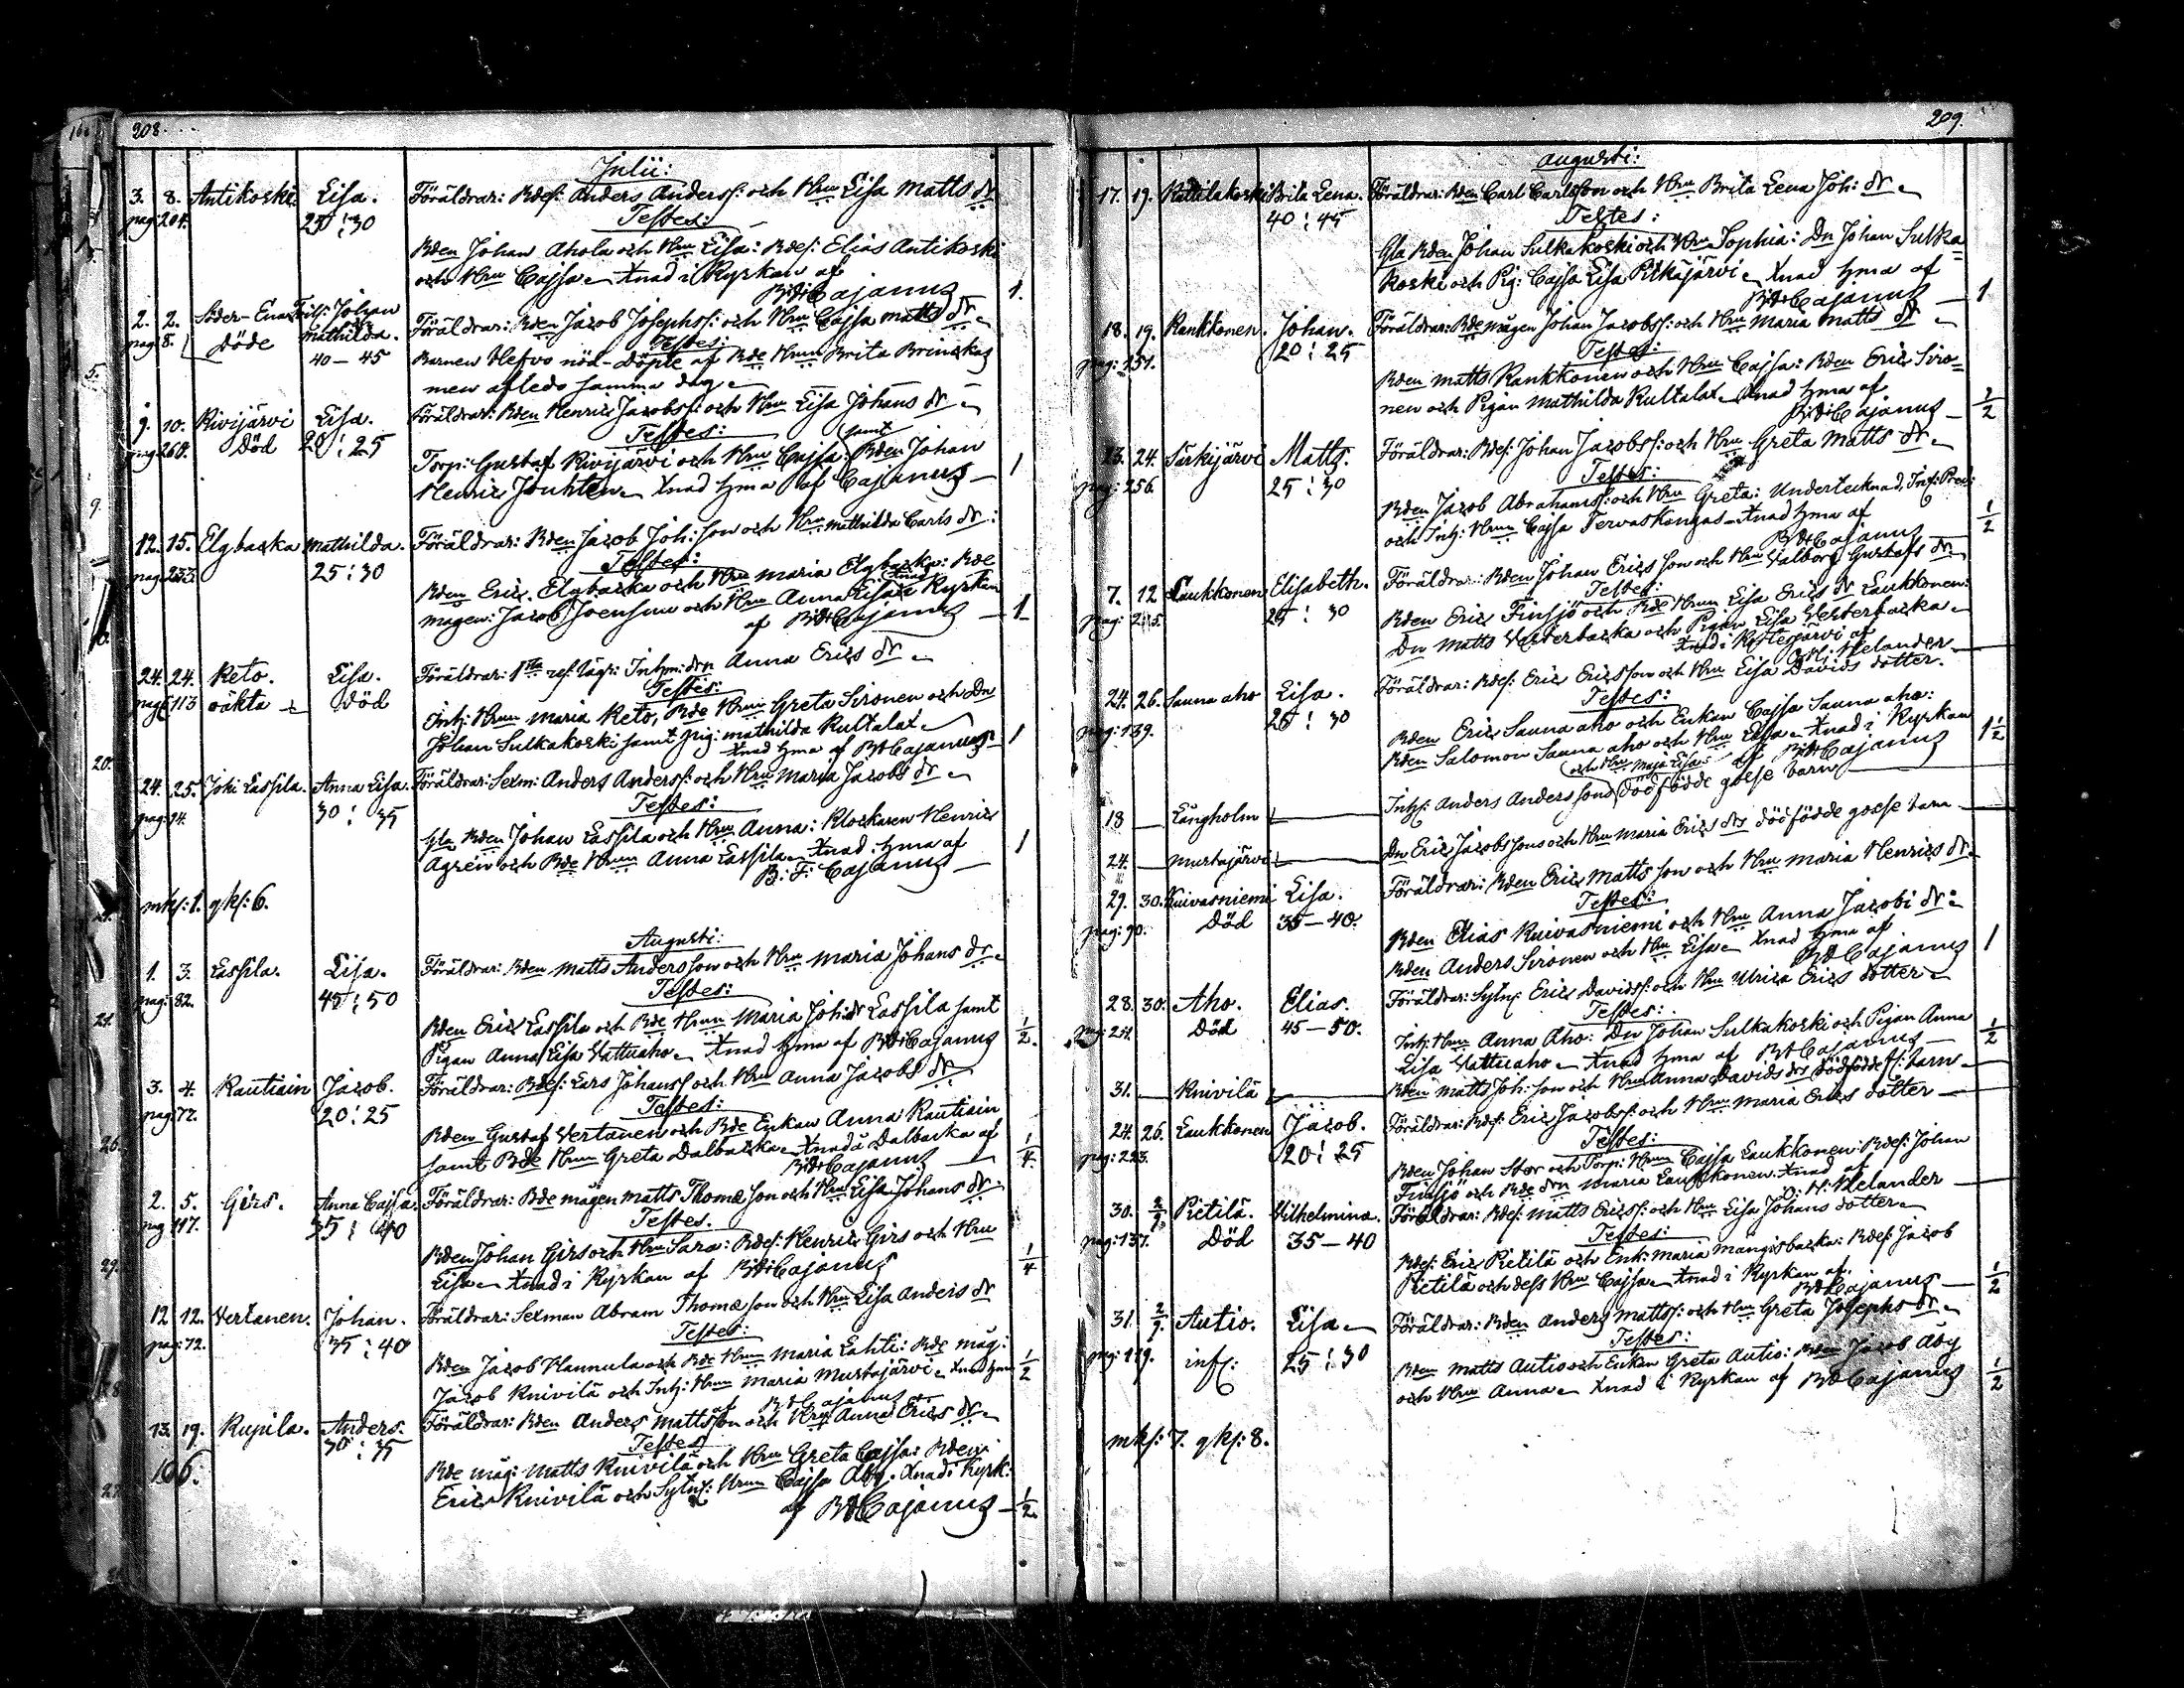 208.
Julii:
3. 8. Antikoski. Lisa. Föräldrar: Bdes: Anders Anderss: och Hru Lisa Matts dr
pag: 204. 25 : 30 Testes:
Bden Johan Ahola och Hru Lisa: Bdes: Elias Antikoski
och Hru Cajsa Xnad i Kyrkan af
Cajanus 1.
2. 2. Söder- Johan Föräldrar: Bden Jacob Josephss: och Hru Cajsa Matts dr
pag: 8. Döde Mathilda. Testes:
40 — 45 Barnen blefvo nöd-döpte af Bde Hrun Brita
men afledo samma dag
9. 10. Kivijärvi Lisa. Föräldrar: Bden Henric Jacobss: och Hru Lisa Johans dr
pag: 268. Död 20 : 25 Testes: samt
Torp: Gustaf Kivijärvi och Hru Cajsa: Bden Johan
Henric Xnad hma af Cajanus 1
12. 15. Elgbacka Mathilda. Föräldrar: Bden Jacob Joh: son och Hru Mathilda Carls dr:
pag: 233. 25 : 30 Testes:
Bden Eric Elgbacka och Hru Maria Elgbacka: Bde
mågen: Jacob Joensuu och Hru Anna Lisa Xnad i Kyrkan
af Cajanus 1
24. 24. Keto. Lisa. Föräldrar: 1sta res: lägr: Inh: drn Anna Erics dr
pag: 113 oäkta Död Testes:
Inh: Hrun Maria Keto, Bde Hrun Greta Sironen och Dn
Johan Sulkakoski samt pig: Mathilda Kultalax
Xnad hma af Cajanus 1
24. 25. Joki Lassila. Anna Lisa. Föräldrar: Sexm: Anders Anderss: och Hru Maria Jacobs dr
pag: 94. 30 : 35 Testes:
Gla Bden Johan Lassila och Hru Anna: Klockaren Henric
Ågren och Bde Hrun Anna Lassila Xnad hma af
B: F: Cajanus 1
mks: 1. qks: 6.
Augusti:
1. 3. Lassila. Lisa. Föräldrar: Bden Matts Andersson och Hru Maria Johans dr
pag: 82. 45 : 50 Testes:
Bden Eric Lassila och Bde Hrun Maria Joh: dr Lassila samt
Pigan Anna Lisa Vattuaho Xnad hma af Cajanus 1/2.
3. 4. Rautiain Jacob. Föräldrar: Bdes: Lars Johanss och Hru Anna Jacobs dr
pag: 72. 20 : 25 Testes:
Bden Gustaf Vertanen och Bde Enkan Anna Rautiain
samt Bde Hrun Greta Dalbacka Xnad å Dalbacka af
Cajanus 1/4.
2. 5. Girs. Anna Cajsa. Föräldrar: Bde mågen Matts Thomæ son och Hru Lisa Johans dr
pag: 117. 35 : 40 Testes.
Bden Johan Girs och Hru Sara: Bdes: Henric Girs och Hru
Lisa Xnad i Kyrkan af Cajanus 1/4
12 12. Vertanen. Johan. Föräldrar: Sexman Abram Thomæ son och Hru Lisa Anders dr
pag: 72. 35 : 40 Testes:
Bden Jacob Hannula och Bde Hrun Maria Lahti: Bde måg:
Jacob Knivilä och Inh: Hrun Maria Mustajärvi Xnad hma 1/2
af Cajanus
13. 19. Kupila. Anders. Föräldrar: Bden Anders Mattsson och Hru Anna Erics dr
166. 30 : 35 Testes
Bde måg: Matts Knivilä och Hru Greta Cajsa: Bden
Eric Knivilä och Sytn: Hrun Cajsa Åby. Xnad i Kyrk:
af Cajanus 1/2.
209.
Augusti:
17. 19. Kattilakoski Brita Lena. Föräldrar: Bden Carl Carlsson och Hru Brita Lena Joh: dr
40 : 45 Testes:
Gla Bden Johan Sulkakoski och Hru Sophia: Dn Johan Sulka=
koski och Pig: Cajsa Lisa Pitkäjärvi Xnad hma af
Cajanus 1
18. 19. Kankkonen. Johan. Föräldrar: Bde mågen Johan Jacobss: och Hru Maria Matts dr
pag: 257. 20 : 25 Testes:
Bden Matts Kankkonen och Hru Cajsa: Bden Eric Siro=
nen och Pigan Mathilda Kultalax Xnad hma af
Cajanus 1/2
23. 24. Särkijärvi Matts. Föräldrar: Bdes: Johan Jacobss: och Hru Greta Matts dr
pag: 256. 25 : 30 Testes:
Bden Jacob Abrahamss: och Hru Greta: Undertecknad,
och Inh: Hrun Cajsa Tervaskangas Xnad hma af
Cajanus 1/2
7. 12 Laukkonen Elisabeth. Föräldrar: Bden Johan Ericsson och Hru Valborg Gustafs dr
25 : 30 Testes:
Bden Eric Finsjö och Bde Hrun Lisa Erics dr Laukkonen:
Dn Matts Vesterbacka och Pigan Lisa Vesterbacka
Xnad i Kortesjärvi af
Helander
24. 26. Sauna aho Lisa. Föräldrar: Bdes: Eric Ericsson och Hru Lisa Davids dotter.
pag: 139. 25 : 30 Testes:
Bden Eric Sauna aho och Enkan Cajsa Sauna aho:
Bden Salomon Sauna aho och Hru Lisa Xnad i Kyrkan
af Cajanus 1 1/2
och Hru Maja Lisas
18 — Långholm — Inh: Anders Anderssons dödfödde gosse barn
24. — Mustajärvi — Dn Eric Jacobssons och Hru Maria Erics drs dödfödde gosse barn
29. 30. Knivasniemi Lisa. Föräldrar: Bden Eric Mattsson och Hru Maria Henrics dr.
pag: 90. Död 35 — 40. Testes:
Bden Elias Knivasniemi och Hru Anna Jacobi dr:
Bden Anders Sironen och Hru Lisa Xnad hma af
Cajanus 1
28. 30. Aho. Elias. Föräldrar: Sytn: Eric Davidss: och Hru Ulrica Erics dotter
Död 45 — 50. Testes:
Inh: Hrun Anna Aho: Dn Johan Sulkakoski och Pigan Anna
Lisa Vattuaho Xnad hma af Cajanus 1/2
31. — Knivilä — Bden Matts Joh: son och Hru Anna Davids drs dödfödde barn
24. 26. Laukkonen Jacob. Föräldrar: Bdes: Eric Jacobss: och Hru Maria Erics dotter
pag: 223. 20 : 25 Testes:
Bden Johan Stor och Torp: Hrun Cajsa Laukkonen: Bdes: Johan
Finsjö och Bde drn Maria Laukkonen Xnad af
Helander
30. 2/9. Pietilä. Vilhelmina. Föräldrar: Bdes: Matts Ericss: och Hru Lisa Johans dotter
pag: 137. Död 35 — 40 Testes:
Bdes: Eric Pietilä och Enk: Maria Mangsbacka: Bdes: Jacob
Pietilä och dess Hru Cajsa Xnad i Kyrkan af
Cajanus 1/2
31. 2/9. Autio. Lisa Föräldrar: Bden Anders Mattss: och Hru Greta Josephs dr
pag: 119. inf: 25 : 30 Testes:
Bden Matts Autio och Enkan Greta Autio: Bden Jacob Åby
och Hru Anna Xnad i Kyrkan af Cajanus 1/2
mks: 7. qks: 8.